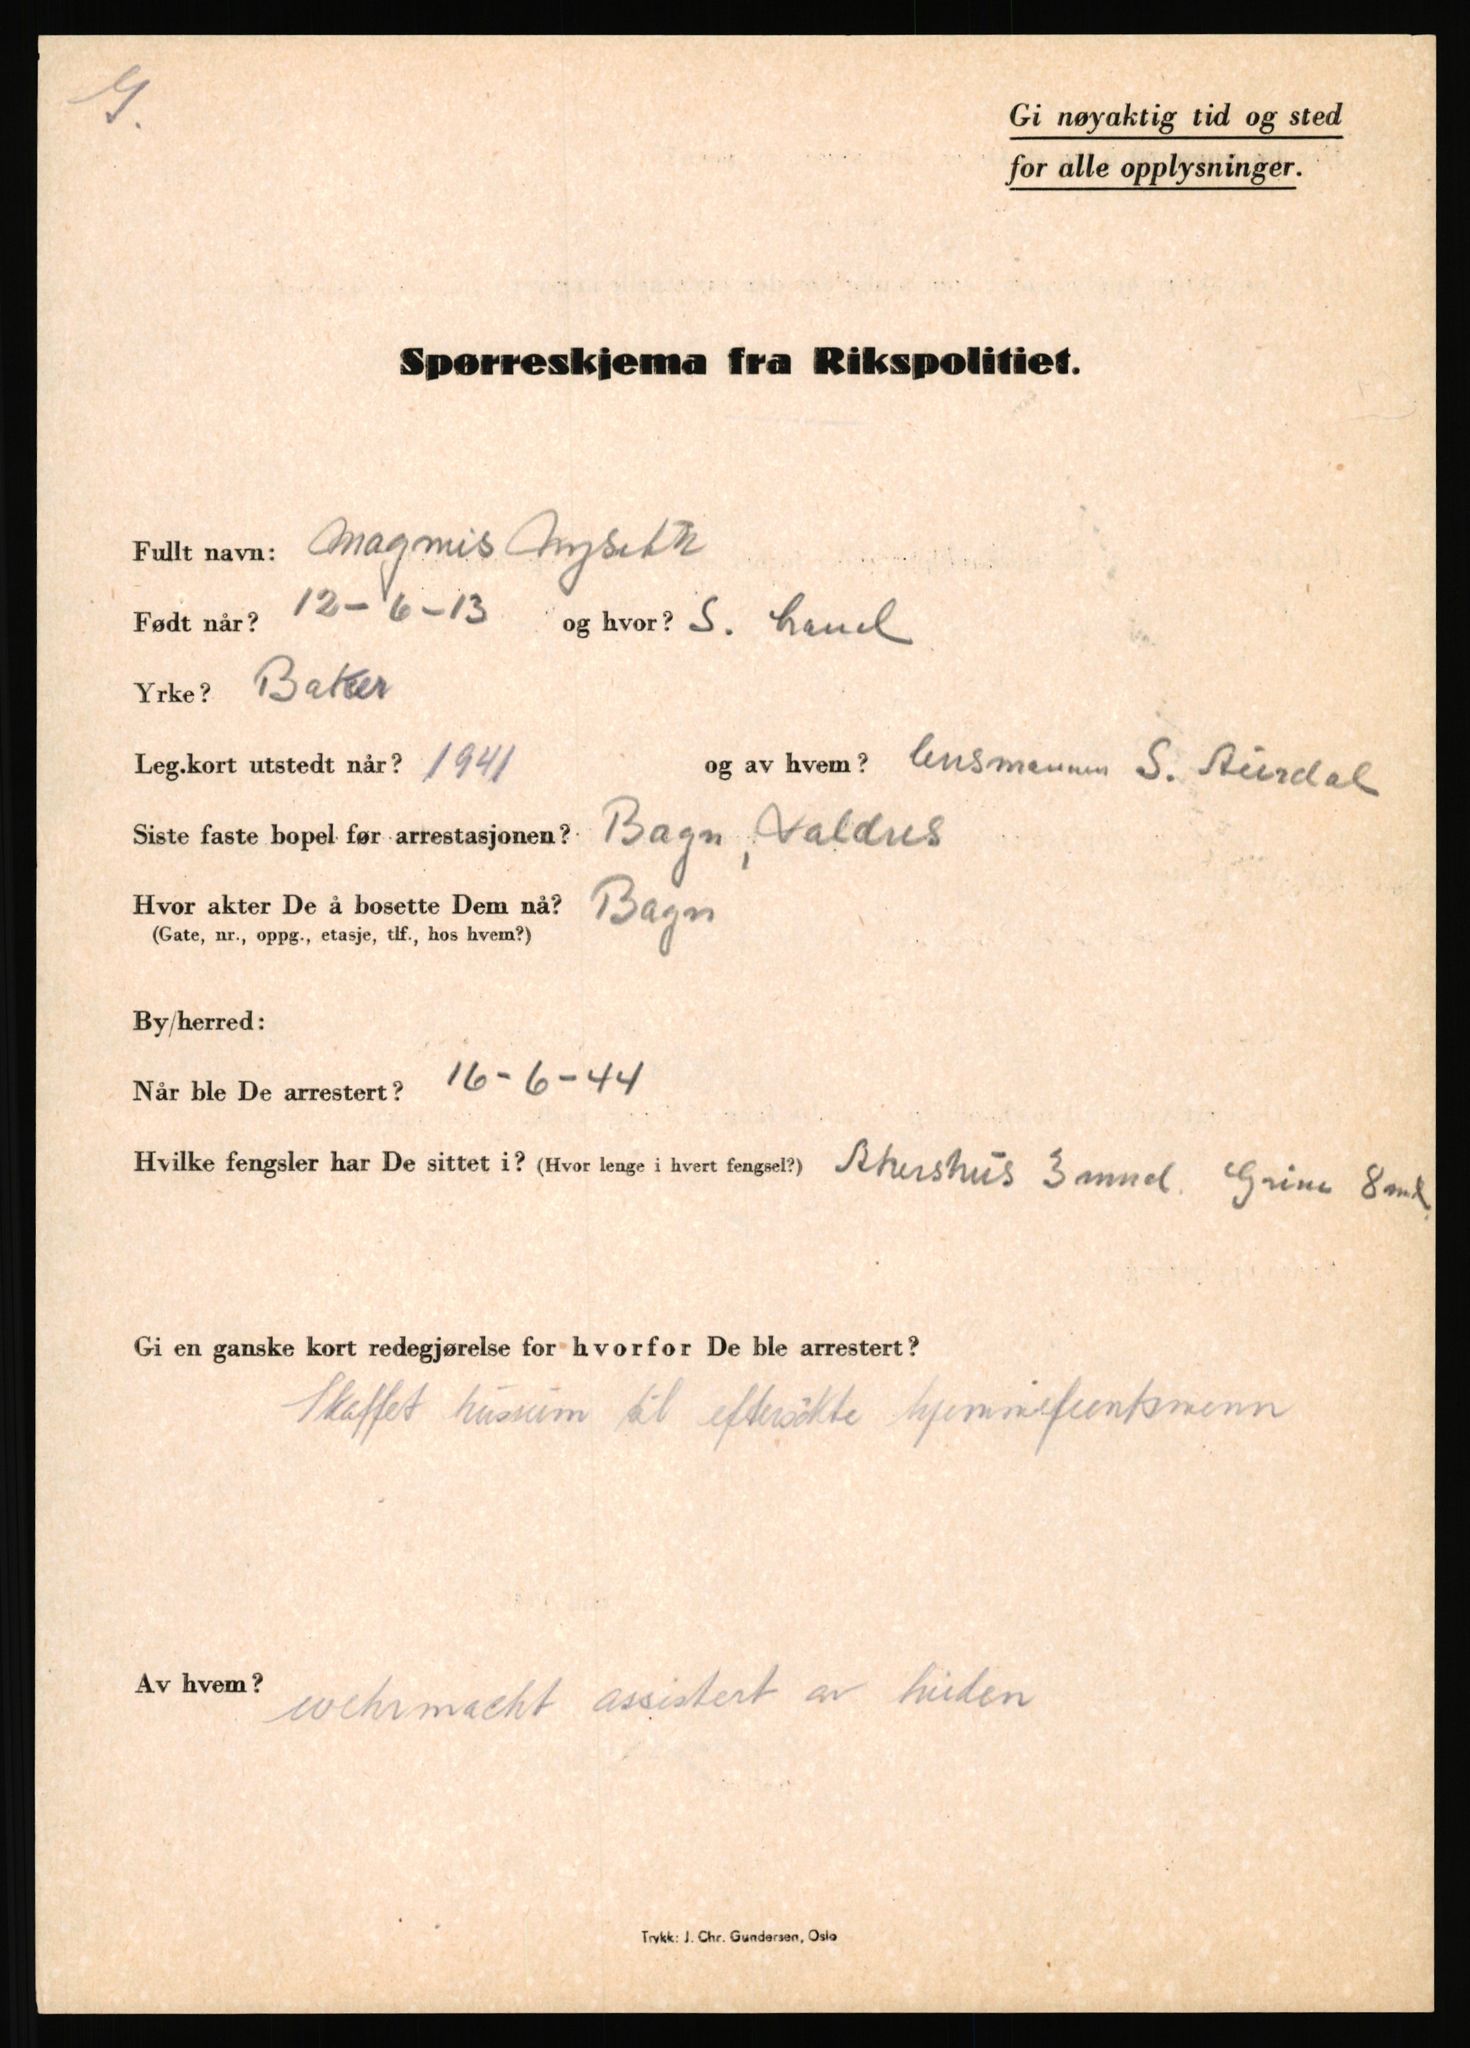 G.
Gi nøyaktig tid og sted
for alle opplysninger.
Spørreskjema fra Rikspolitiet.
Fullt navn: Magnus Nyseth
Født når? 12-6-13 og hvor? S. Land
Yrke? Baker
Leg.kort utstedt når? 1941 og av hvem? lensmannen S. Aurdal
Siste faste bopel før arrestasjonen? Bagn, Valdres
Hvor akter De å bosette Dem nå? Bagn
(Gate, nr., oppg., etasje, tlf., hos hvem?)
By/herred:
Når ble De arrestert? 16-6-44
Hvilke fengsler har De sittet i? (Hvor lenge i hvert fengsel?) Akershus 3 mnd. Grini 8 md.
Gi en ganske kort redegjørelse for hvorfor De ble arrestert?
Skaffet husrum til eftersökte hjemmefrontsmenn
Av hvem? wehrmacht assistert av hirden
Trykk: J. Chr. Gundersen, Oslo